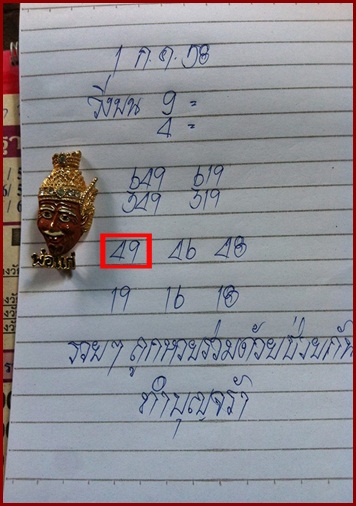 1 ก.ค. 58
วิ่งบน 9 =
4 =
649 619
349 319
49 46 48
19 16 18
รวยๆ ถูกหวยร่วมด้วยช่วยกัน
ทำบุญจร้า
พ่อแก่